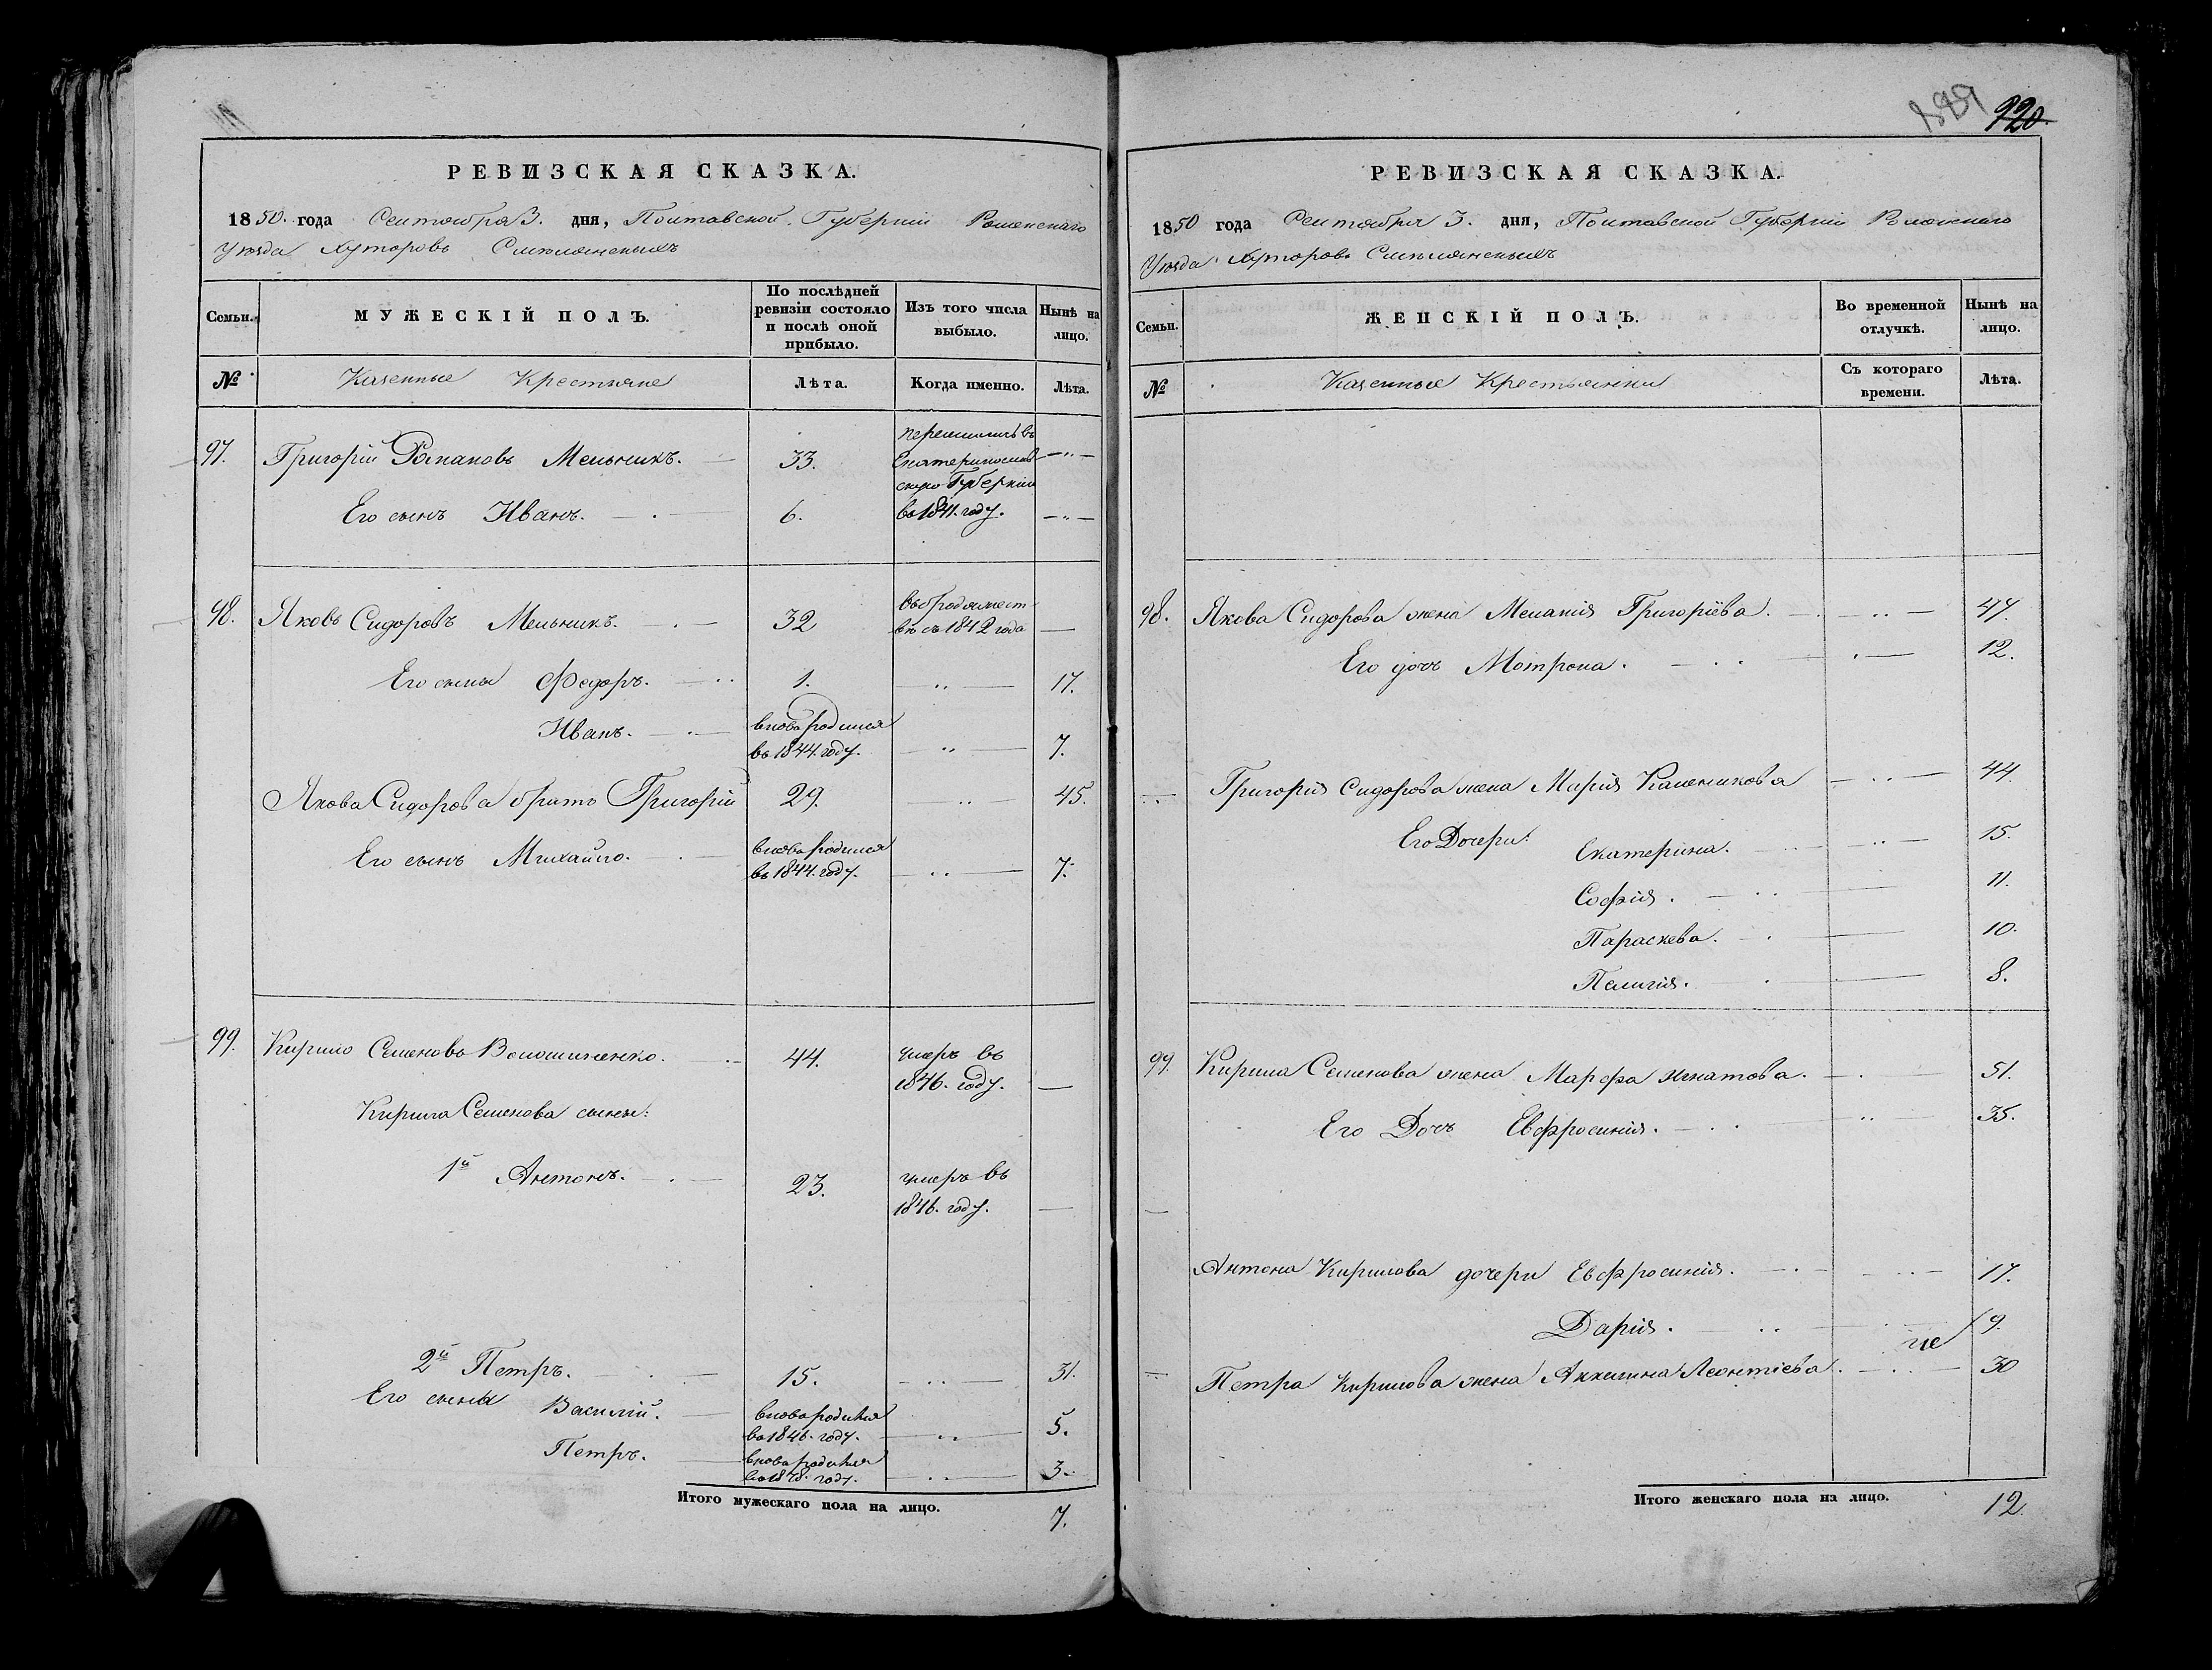 РЕВИЗСКАЯ СКАЗКА.
1850. года Сентября 3. дня, Полтавской Губерніи Роменскаго
Уѣзда Хуторовъ Смѣлянскихъ
Семьи.
МУЖЕСКІЙ ПОЛЪ.
По послѣдней ревизіи состояло и послѣ оной прибыло.
Изъ того числа выбыло.
Нынѣ на лицо.
№
Казенные Крестьяне
Лѣта.
Когда именно.
Лѣта.
97. Григорій Романовъ Мельникъ. 33. перечислѣнъ въ Екатеринослав скую Губернію —"—
Его сынъ Иванъ. 6. въ 1841. году. —"—
98. Яковъ Сидоровъ Мельникъ. 32 въ бродяжест вѣ съ 1842 года —
Его сыны Федоръ. 1. —"— 17.
Иванъ. вновь родился въ 1844. году. —"— 7.
Якова Сидорова братъ Григорій 29. —"— 45.
Его сынъ Михайло. вновь родился въ 1844. году. —"— 7.
99. Кирило Семеновъ Волошиненко. 44. умеръ въ 1846. году. —
Кирила Семенова сыны:
1й Антонъ. 23. умеръ въ 1846. году. —
2й Петръ. 15. —"— 31.
Его сыны Василій. вновь родился въ 1846. году. —"— 5.
Петръ. вновь родился году. —"— 3.
Итого мужескаго пола на лицо. 7.
920.
РЕВИЗСКАЯ СКАЗКА.
1850 года Сентября 3. дня, Полтавской Губерніи Роменскаго
Уѣзда Хуторовъ Смѣлянскихъ
Семьи.
ЖЕНСКІЙ ПОЛЪ.
Во временной отлучкѣ.
Нынѣ на лицо.
№
Казенные Крестьянки
Съ котораго времени.
Лѣта.
98. Якова Сидорова жена Меланія Григоріева. —"— 47.
Его дочь Мотрона. — 12.
Григорія Сидорова жена Марія Калениковa —"— 44.
Его Дочери: Екатерина. —"— 15.
Софія. — 11.
Параскева. — 10.
Пелагія. — 8.
99. Кирила Семенова жена Марфа Игнатова. — 51.
Его Дочь Евфросинія. —"— 35.
Антона Кирилова дочери Евфросинія. —"— 17.
Дарія. —"— 9.
Петра Кирилова жена Акилина Леонтіева. —"— 30
Итого женскаго пола на лицо. 12.